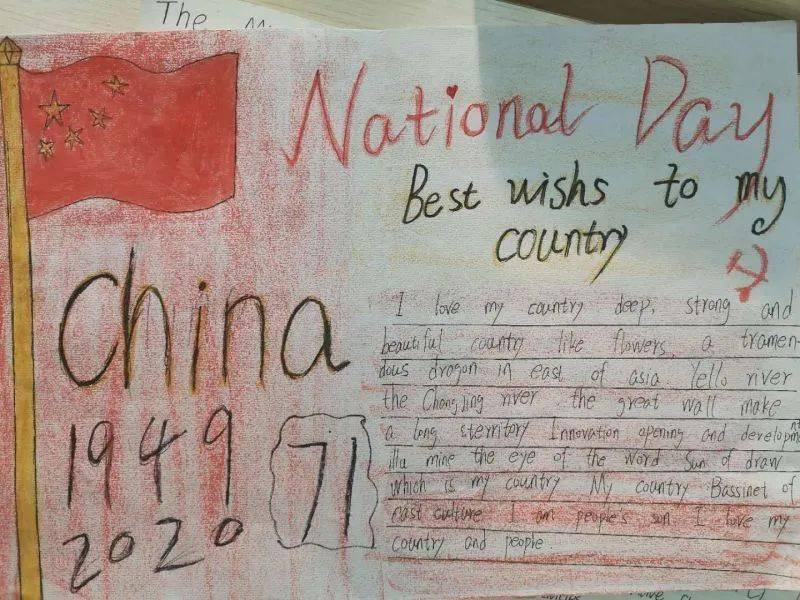 The
National Day
Best wishs to my
country
China
1949
2020
71
I love my country deep, strong and
beautiful country like flowers, a tramen-
dous dragon in east of asia Yello river
the Changjing river the great wall make
a long sterritory Innovation opening and developmnt
illu mine the eye of the word Sun of draw
which is my country My country Bassinet of
mast culture I am people's sun I love my
country and people